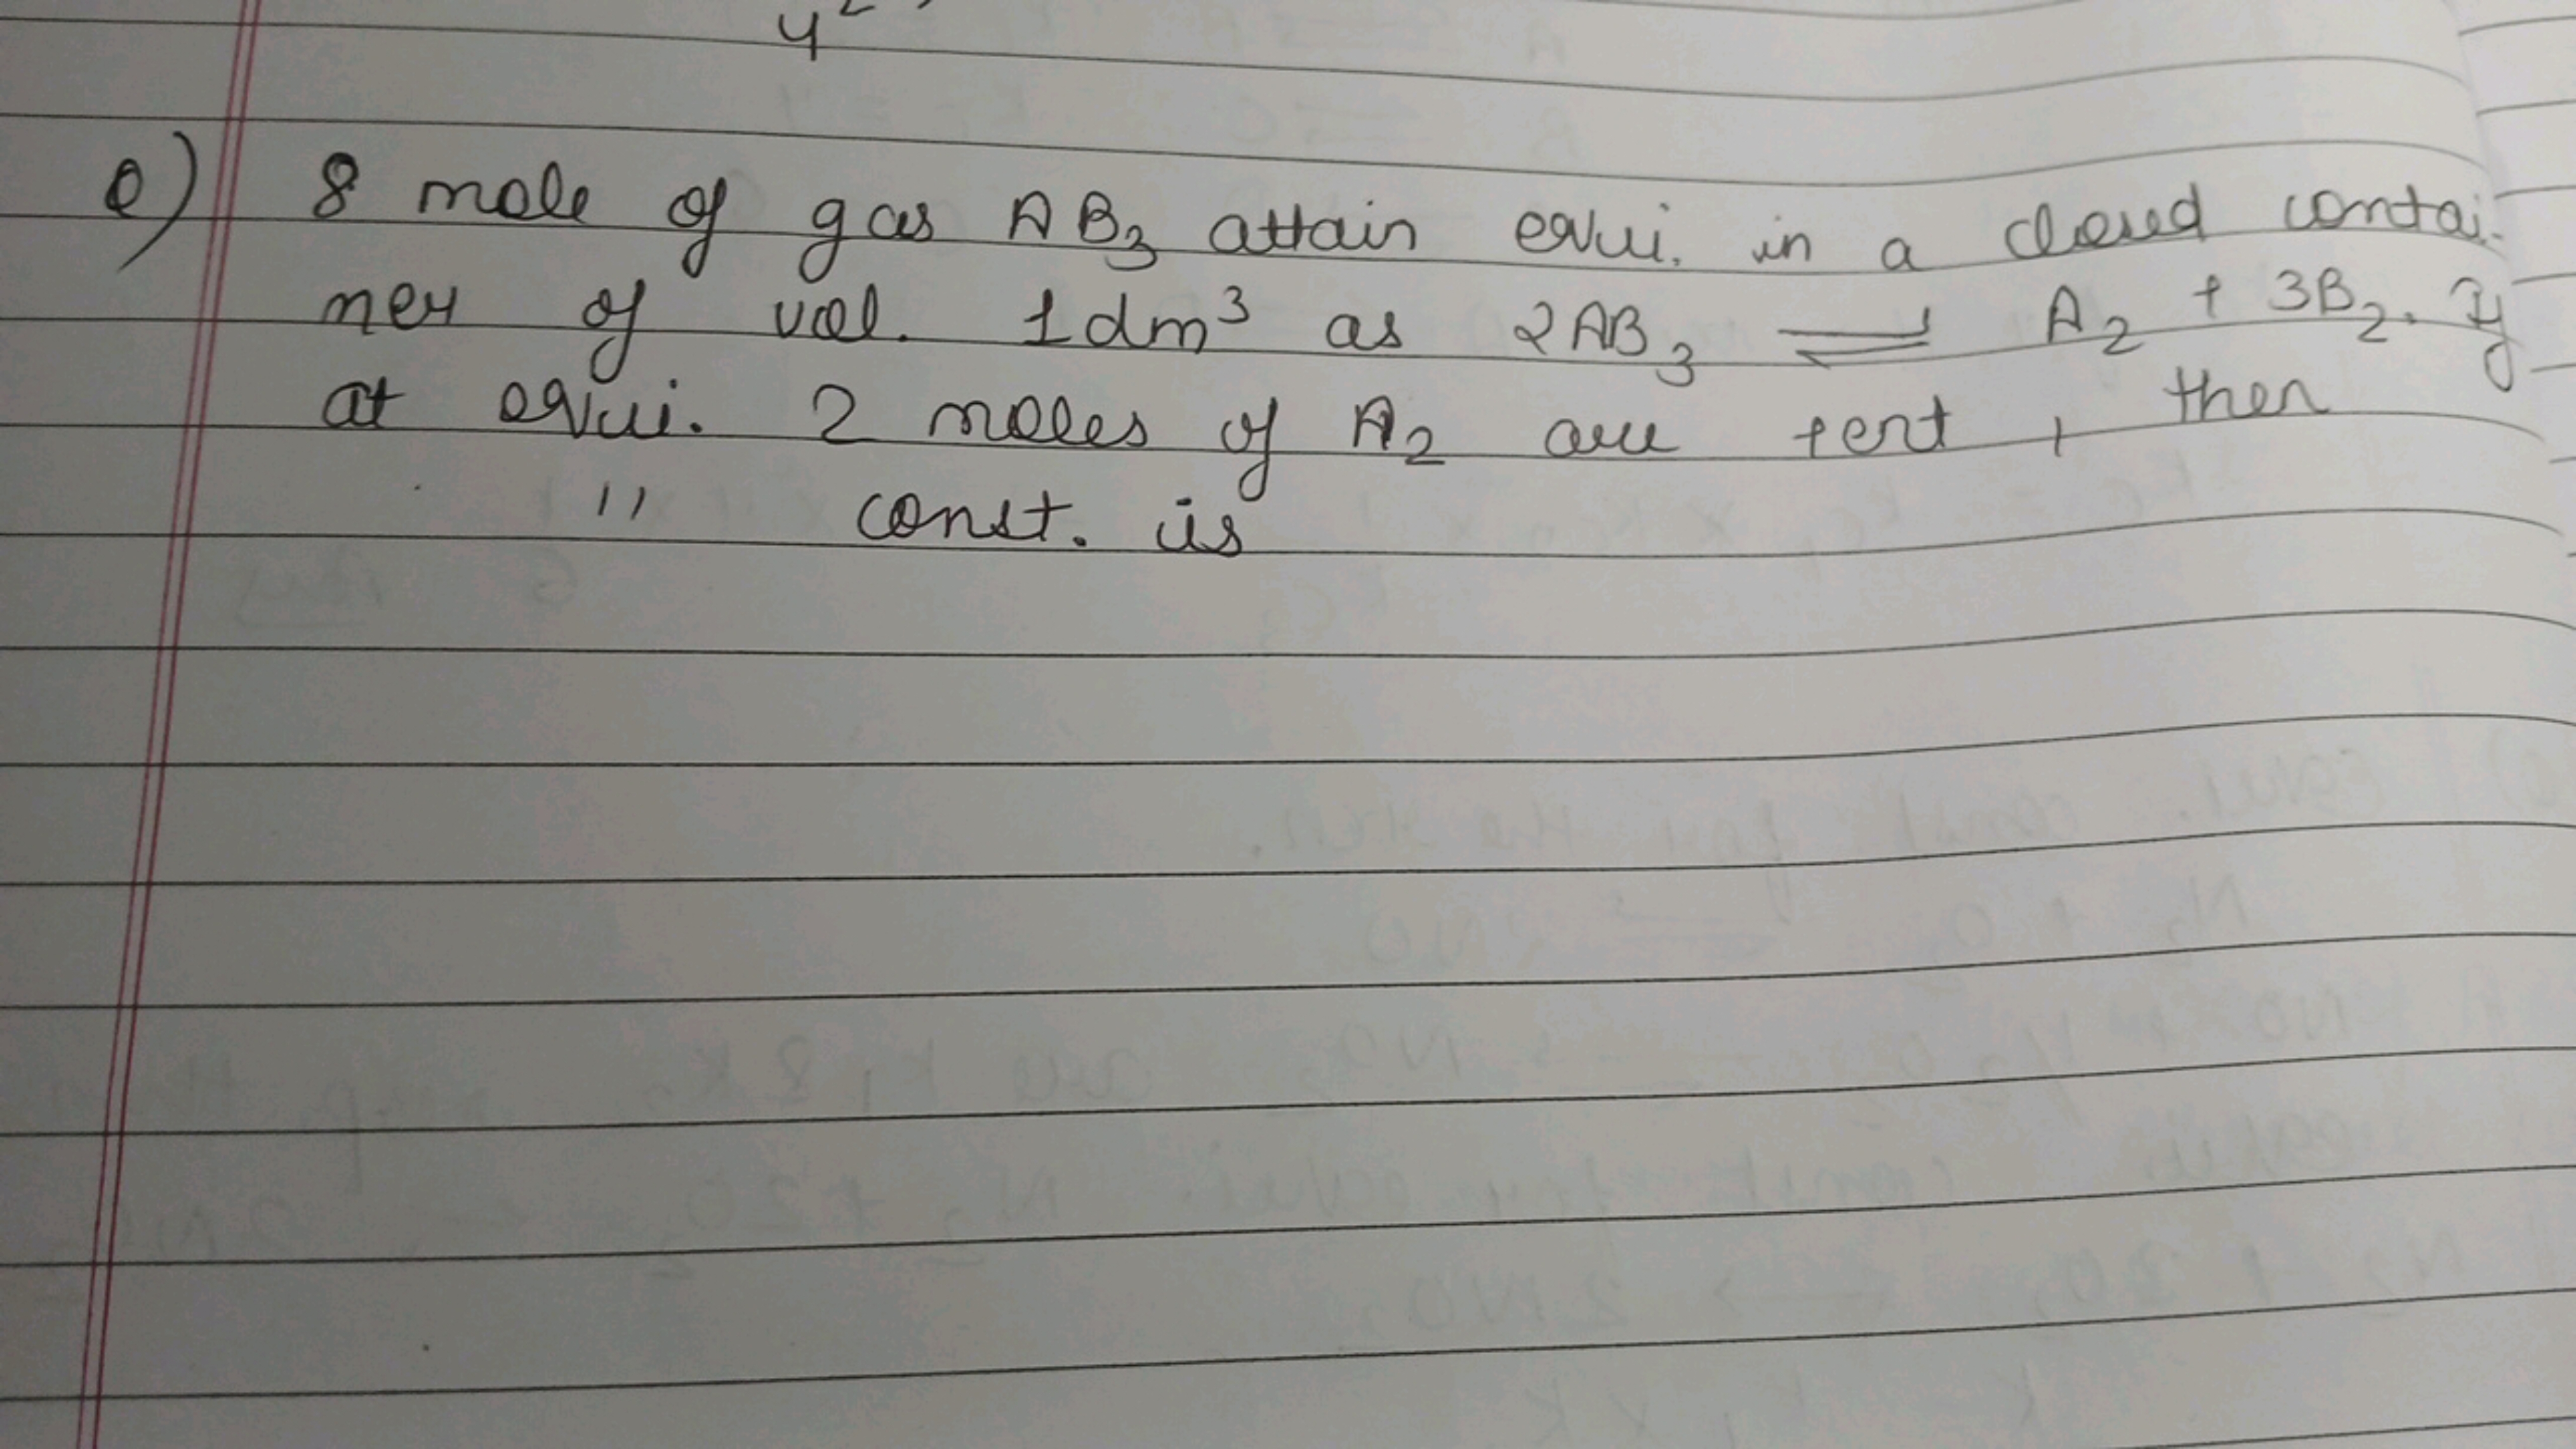 4²
Q) 8 mole of gas AB₃ attain equi. in a closed contai-
ner of vol. 1dm³ as 2AB₃ ⇌ A₂ + 3B₂. If
at equi. 2 moles of A₂ are pent, then
" const. is